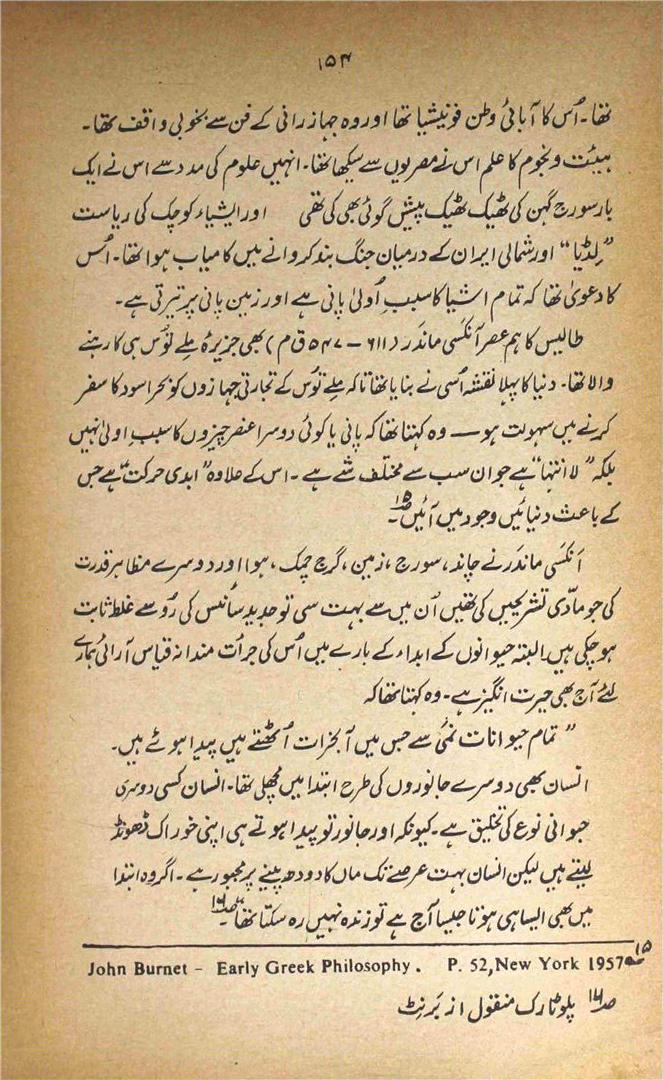 ۱۵۴
تھا۔ اُس کا آبائی وطن فونیشیا تھا اور وہ جہاز رانی کے فن سے بخوبی واقف تھا۔
ہیئت و نجوم کا علم اس نے مصریوں سے سیکھا تھا۔ انہیں علوم کی مدد سے اس نے ایک
بار سورج گہن کی ٹھیک ٹھیک پیش گوئی بھی کی تھی اور ایشیاء کوچک کی ریاست
”لِڈیا“ اور شمالی ایران کے درمیان جنگ بند کروانے میں کامیاب ہوا تھا۔ اُس
کا دعویٰ تھا کہ تمام اشیا کا سببِ اُولیٰ پانی ہے اور زمین پانی پر تیرتی ہے۔
طالیس کا ہم عصر آنکسی ماندَر (۶۱۱ – ۵۴۷ ق م) بھی جزیرۂ ملے ٹوس ہی کا رہنے
والا تھا۔ دنیا کا پہلا نقشہ اُسی نے بنایا تھا تاکہ ملے ٹوس کے تجارتی جہازوں کو بحر اسود کا سفر
کرنے میں سہولت ہو — وہ کہتا تھا کہ پانی یا کوئی دوسرا عنصر چیزوں کا سببِ اولیٰ نہیں
بلکہ ”لا انتہا“ ہے جو ان سب سے مختلف شے ہے۔ اس کے علاوہ ”ابدی حرکت“ ہے جس
کے باعث دنیائیں وجود میں آئیں۔ ؁۱۵
آنکسی ماندَر نے چاند، سورج، زمین، گرج چمک، ہوا اور دوسرے مظاہر قدرت
کی جو مادّی تشریحیں کی تھیں اُن میں سے بہت سی تو جدید سائنس کی رُو سے غلط ثابت
ہو چکی ہیں البتہ حیوانوں کے ابداء کے بارے میں اُس کی جرأت مندانہ قیاس آرائی ہمارے
لئے آج بھی حیرت انگیز ہے۔ وہ کہتا تھا کہ
”تمام حیوانات نمی سے جس میں آبخرات اُٹھتے ہیں پیدا ہوئے ہیں۔
انسان بھی دوسرے جانوروں کی طرح ابتدا میں مچھلی تھا۔ انسان کسی دوسری
حیوانی نوع کی تخلیق ہے۔ کیونکہ اور جانور تو پیدا ہوتے ہی اپنی خوراک ڈھونڈ
لیتے ہیں لیکن انسان بہت عرصے تک ماں کا دودھ پینے پر مجبور ہے۔ اگر وہ ابتدا
میں بھی ایسا ہی ہوتا جیسا آج ہے تو زندہ نہیں رہ سکتا تھا“۔ ص۱۶
John Burnet - Early Greek Philosophy. P. 52, New York 1957 ص۱۵
ص۱۶ پلوٹارک منقول از بَرنِٹ